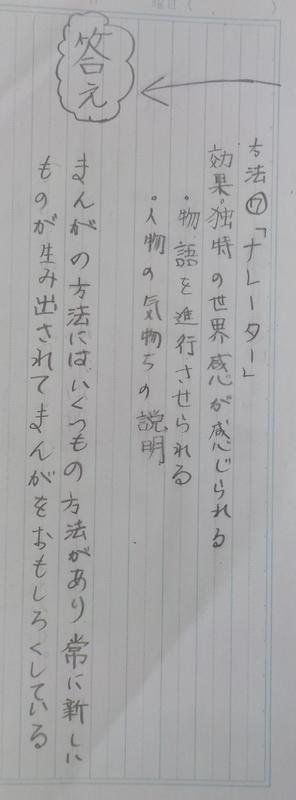 方法⑦「ナレーター」
効果・独特の世界感が感じられる
・物語を進行させられる
・人物の気物ちの説明
答え
まんがの方法にはいくつもの方法があり常に新しに
ものが生み出されてまんがをおもしろくしている